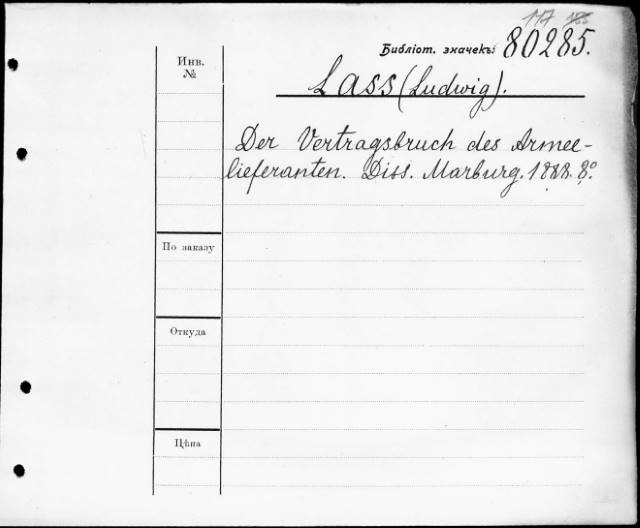 117
Библіот. значекъ: 80285.
Инв.
№
Lass (Ludwig).
Der Vertragsbruch des Armee-
lieferanten. Diss. Marburg. 1888. 8º
По заказу
Откуда
Цѣна